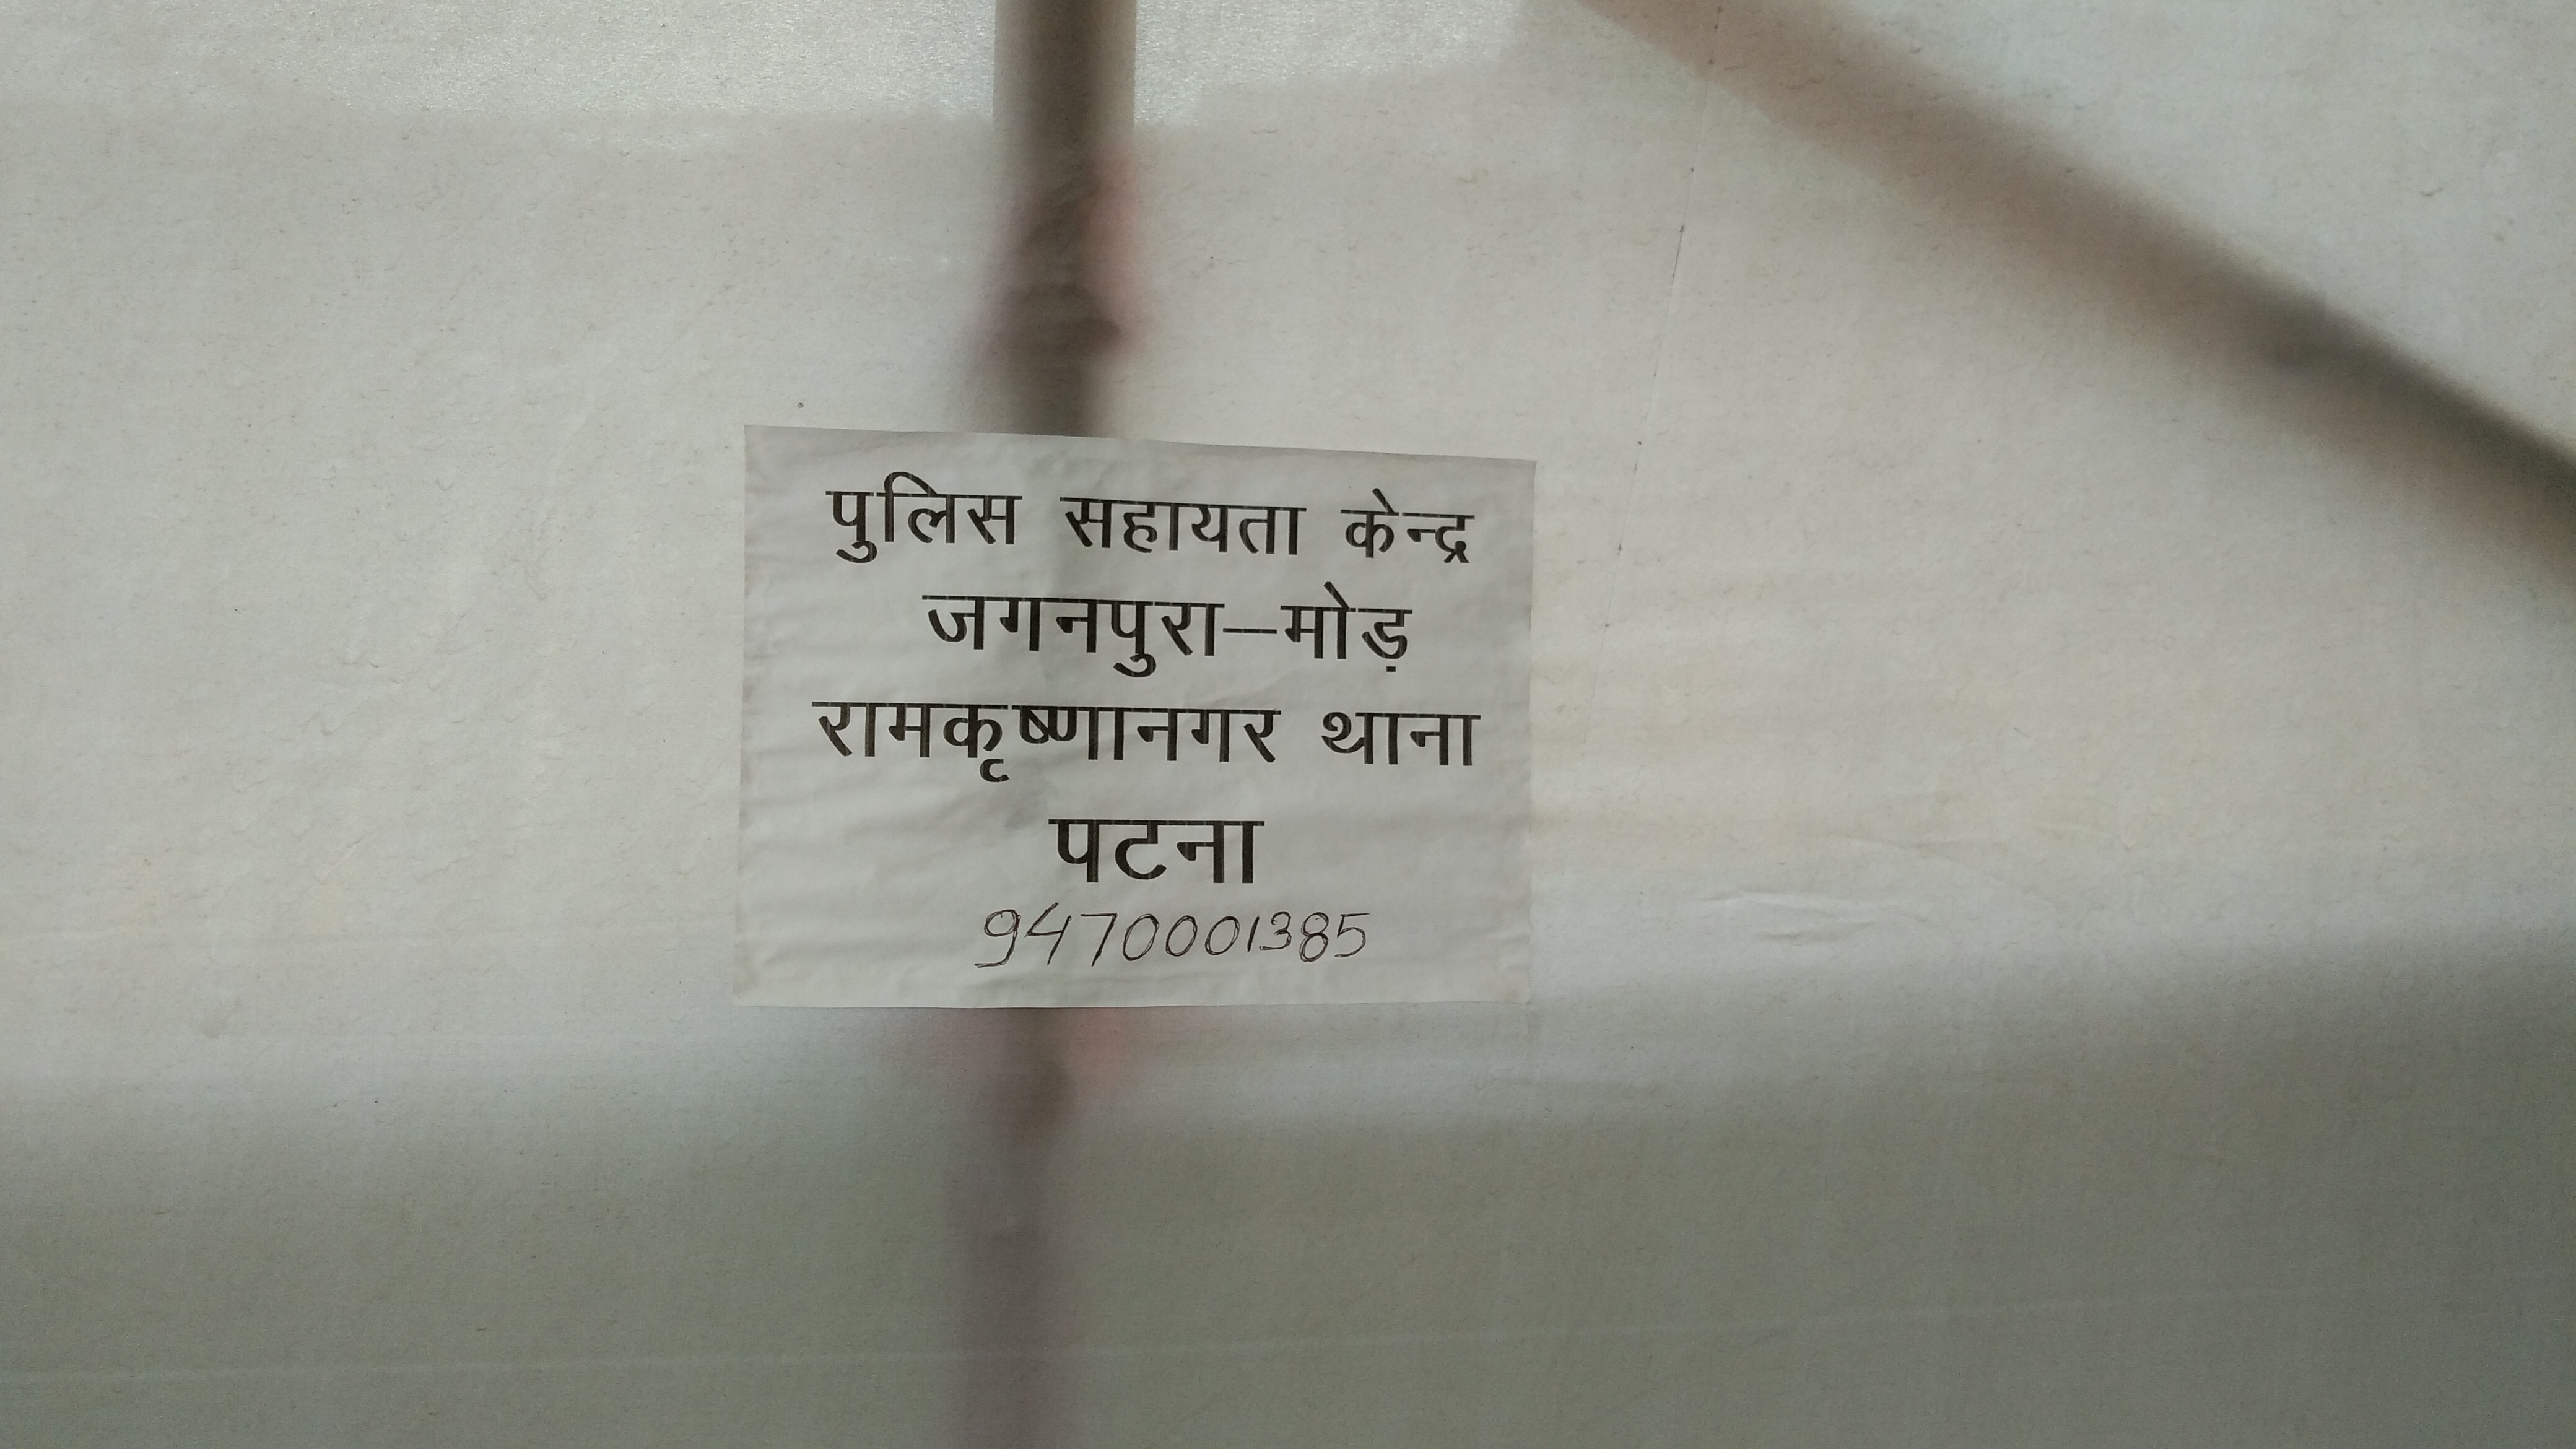 पुलिस सहायता केन्द्र
जगनपुरा–मोड़
रामकृष्णानगर थाना
पटना
9470001385